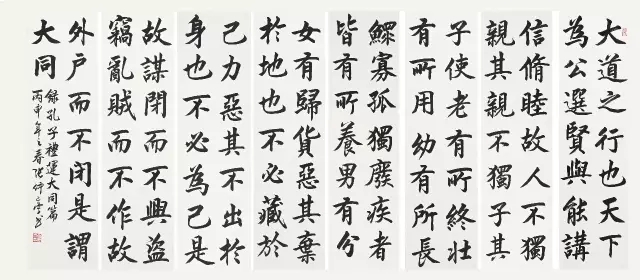 大道之行也天下
為公選賢與能講
信脩睦故人不獨
親其親不獨子其
子使老有所終壯
有所用幼有所長
鰥寡孤獨廢疾者
皆有所養男有分
女有歸貨惡其棄
於地也不必藏於
己力惡其不出於
身也不必為己是
故謀閉而不興盜
竊亂賊而不作故
外戶而不閉是謂
大同
錄孔子禮運大同篇
丙申年之春張仲亭書